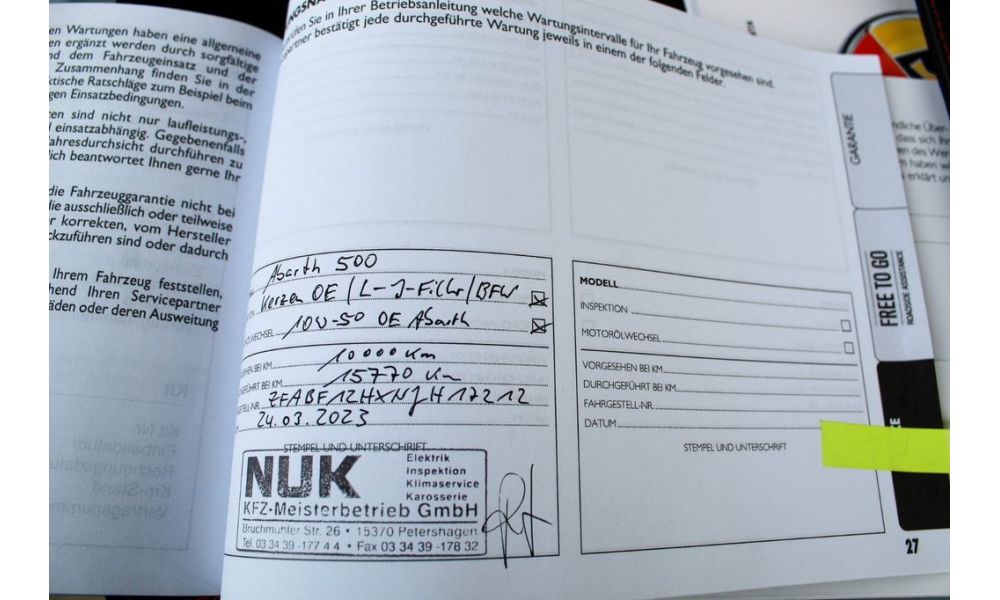 en Wartungen haben eine allgemeine
en ergänzt werden durch sorgfältige
d dem Fahrzeugeinsatz und der
Zusammenhang finden Sie in der
ktische Ratschläge zum Beispiel beim
gen Einsatzbedingungen.
en sind nicht nur laufleistungs-,
einsatzabhängig. Gegebenenfalls
ahresdurchsicht durchführen zu
lich beantwortet Ihnen gerne Ihr
die Fahrzeuggarantie nicht bei
die ausschließlich oder teilweise
r korrekten, vom Hersteller
ckzuführen sind oder dadurch
Ihrem Fahrzeug feststellen,
hend Ihren Servicepartner
äden oder deren Ausweitung
Sie in Ihrer Betriebsanleitung welche Wartungsintervalle für Ihr Fahrzeug vorgesehen sind.
partner bestätigt jede durchgeführte Wartung jeweils in einem der folgenden Felder.
Abarth 500
Kerzen OE / L-I-Filter / BFW
LWECHSEL 10W-50 OE Abarth
SEHEN BEI KM 10000 Km
GEFÜHRT BEI KM 15770 Km
GESTELL-NR. ZFABF12HXNJH17212
24.03.2023
STEMPEL UND UNTERSCHRIFT
NUK
Elektrik
Inspektion
Klimaservice
Karosserie
KFZ-Meisterbetrieb GmbH
Bruchmühler Str. 26 • 15370 Petershagen
Tel. 03 34 39 -177 4 4 • Fax 03 34 39 -178 32
MODELL
INSPEKTION
MOTORÖLWECHSEL
VORGESEHEN BEI KM
DURCHGEFÜHRT BEI KM
FAHRGESTELL-NR.
DATUM
STEMPEL UND UNTERSCHRIFT
GARANTIE
FREE TO GO
ROADSIDE ASSISTANCE
CE
27